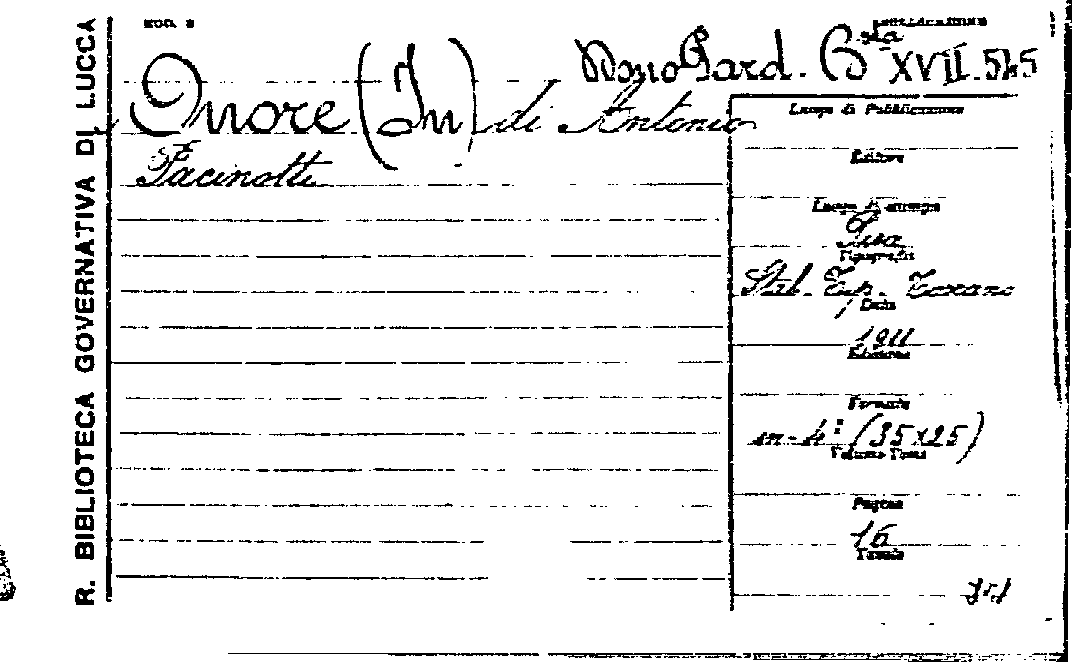 R. BIBLIOTECA GOVERNATIVA DI LUCCA
MOD. 2
Dono Gard. Bsta XVII. 545
Onore (In) di Antonio
Pacinotti
Luogo di Pubblicazione
Editore
Luogo di stampa
Pisa
Tipografia
Stab. Tip. Toscano
Data
1911
Edizione
Formato
in-4º (35x25)
Volume Tomo
Pagine
16
Tavole